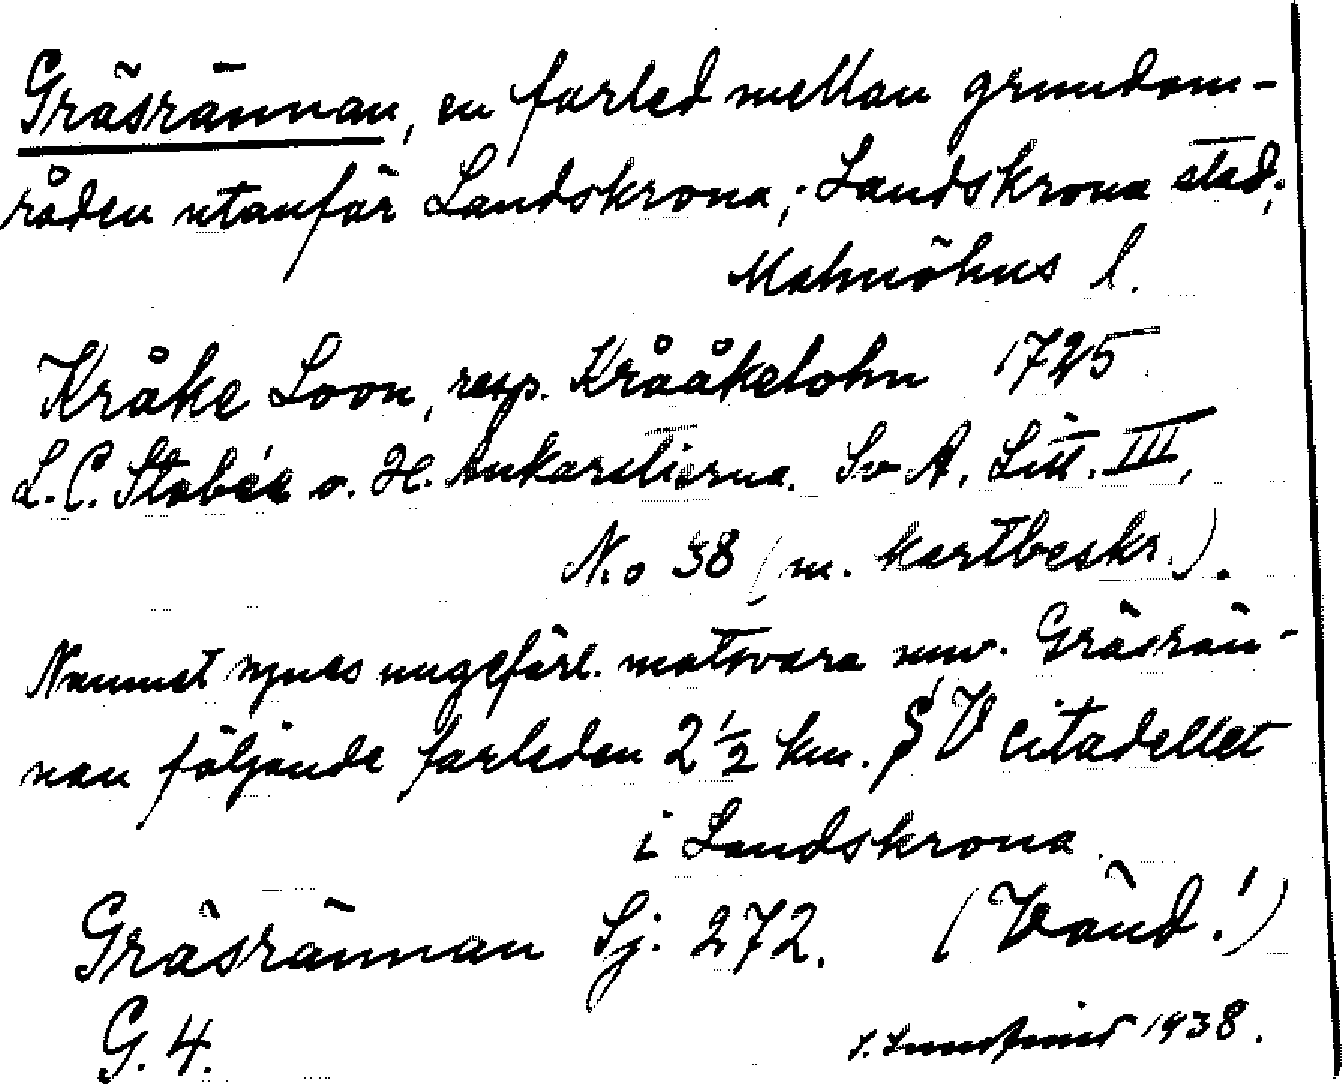 Gräsrännan, en farled mellan grundom-
råden utanför Landskrona; Landskrona stad;
Malmöhus l.
Kråke Loon, resp. Krååkelohn 1725
L. C. Stobée o. H. Ankarstierna. Sv A. Litt. III,
N:o 38 (m. kartbeskr.).
Namnet synes ungefärl. motsvara nuv. Gräsrän-
nan följande farleden 2½ km. S V citadellet
i Landskrona.
Gräsrännan Sj: 272. (Vänd!)
G. 4. 1938.